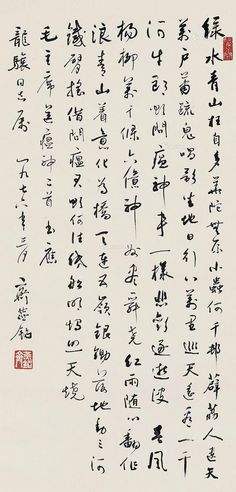 绿水青山枉自多华陀无奈小虫何千邨薜荔人遗矢
萬户萧疏鬼唱歌坐地日行八萬里巡天遥看一千
河牛郎欲问瘟神事一样悲欢逐逝波 春风
杨柳萬千条六億神州尽舜尧红雨随心翻作
浪青山着意化为桥天连五岭银锄落地动三河
铁臂摇借问瘟君欲何往纸船明烛照天烧
毛主席送瘟神二首 书应
龍驤同志属 一九七六年三月
齊燕铭